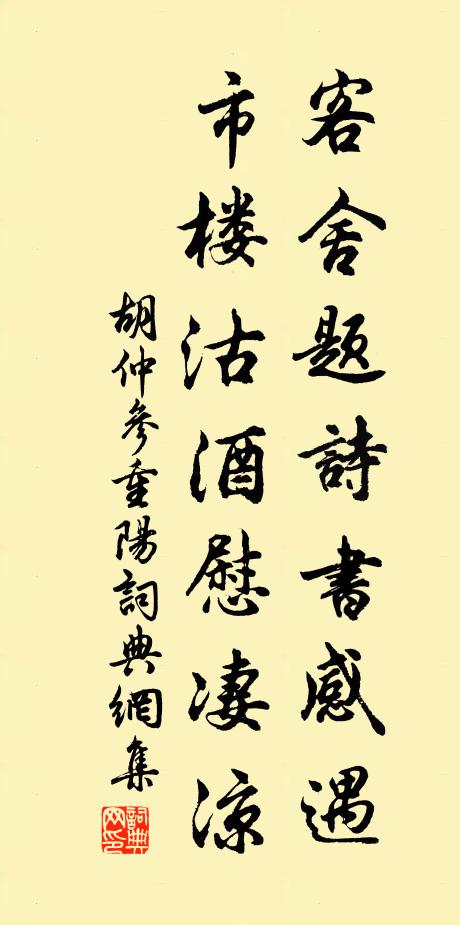 客舍題詩書感遇
市楼沽酒慰凄涼
胡仲參重陽詞典網集
詞典網印